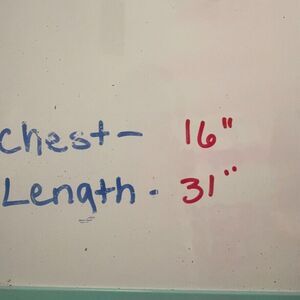 Chest - 16"
Length - 31"